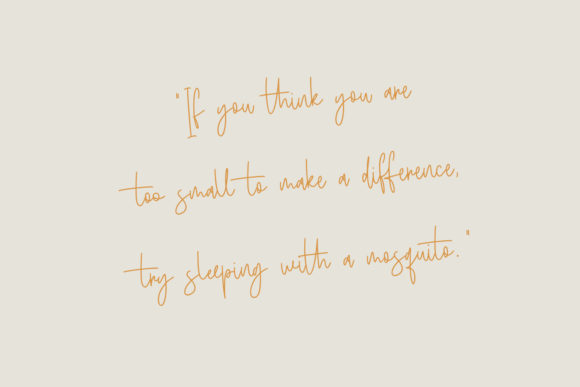 "If you think you are
too small to make a difference,
try sleeping with a mosquito."